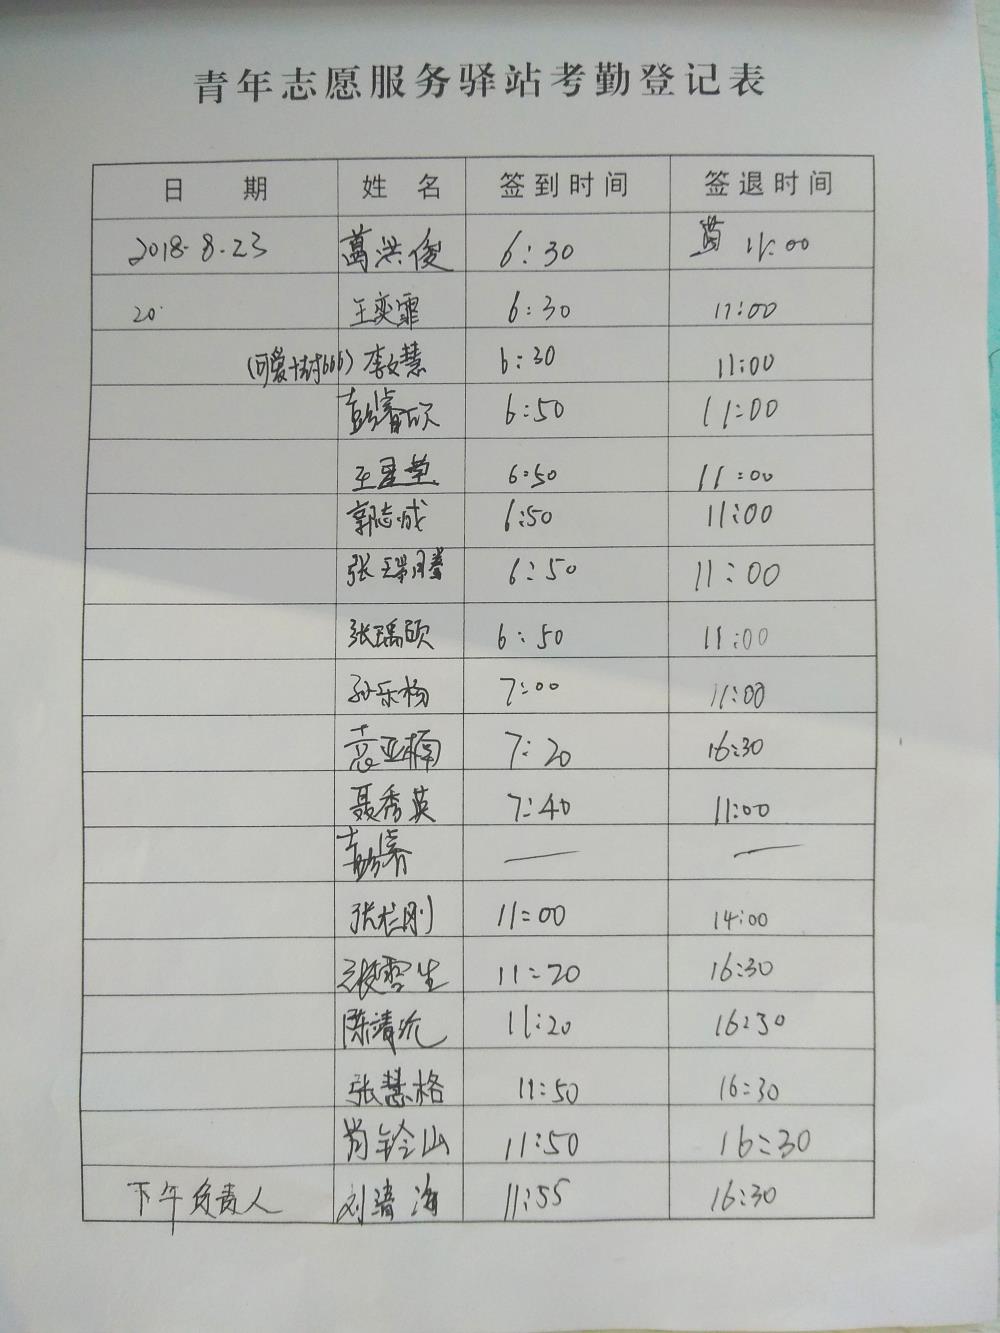 青年志愿服务驿站考勤登记表
日 期 姓 名 签到时间 签退时间
2018.8.23 葛洪俊 6:30 11:00
20 王奕霏 6:30 11:00
(可爱 666) 李文慧 6:30 11:00
彭睿欣 6:50 11:00
王 6:50 11:00
郭志成 6:50 11:00
张瑞腾 6:50 11:00
张瑀硕 6:50 11:00
孙乐杨 7:00 11:00
袁亚楠 7:20 16:30
聂秀英 7:40 11:00
彭睿 — —
张 刚 11:00 14:00
雪生 11:20 16:30
陈清沅 11:20 16:30
张慧格 11:50 16:30
肖铃山 11:50 16:30
下午负责人 刘清海 11:55 16:30